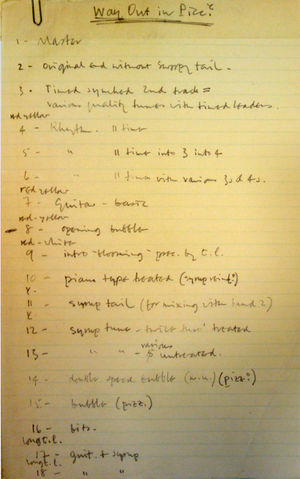 Way Out in Pizz?
1 - Master
2 - Original end without syrupy tail.
3 - Timed synched 2nd track =
various quality tunes with timed leaders.
red yellow
4 - Rhythm. " time
5 - " " time into 3 into 4
6 - " " times with various 3s & 4s.
red yellow
7 - Guitar - basic
red-yellow
8 - opening bubble
red-white
9 - intro "blooming" proc. by
10 - piano type treated (syrup reinf.)
Y.
11 - syrup tail (for mixing with band 2)
Y.
12 - syrup tune - treated
13 - " " - various untreated.
14 - double speed bubble (pizz:)
15 - bubble (pizz.)
16 - bits.
long
17 - guit. + syrup
long
18 - " "